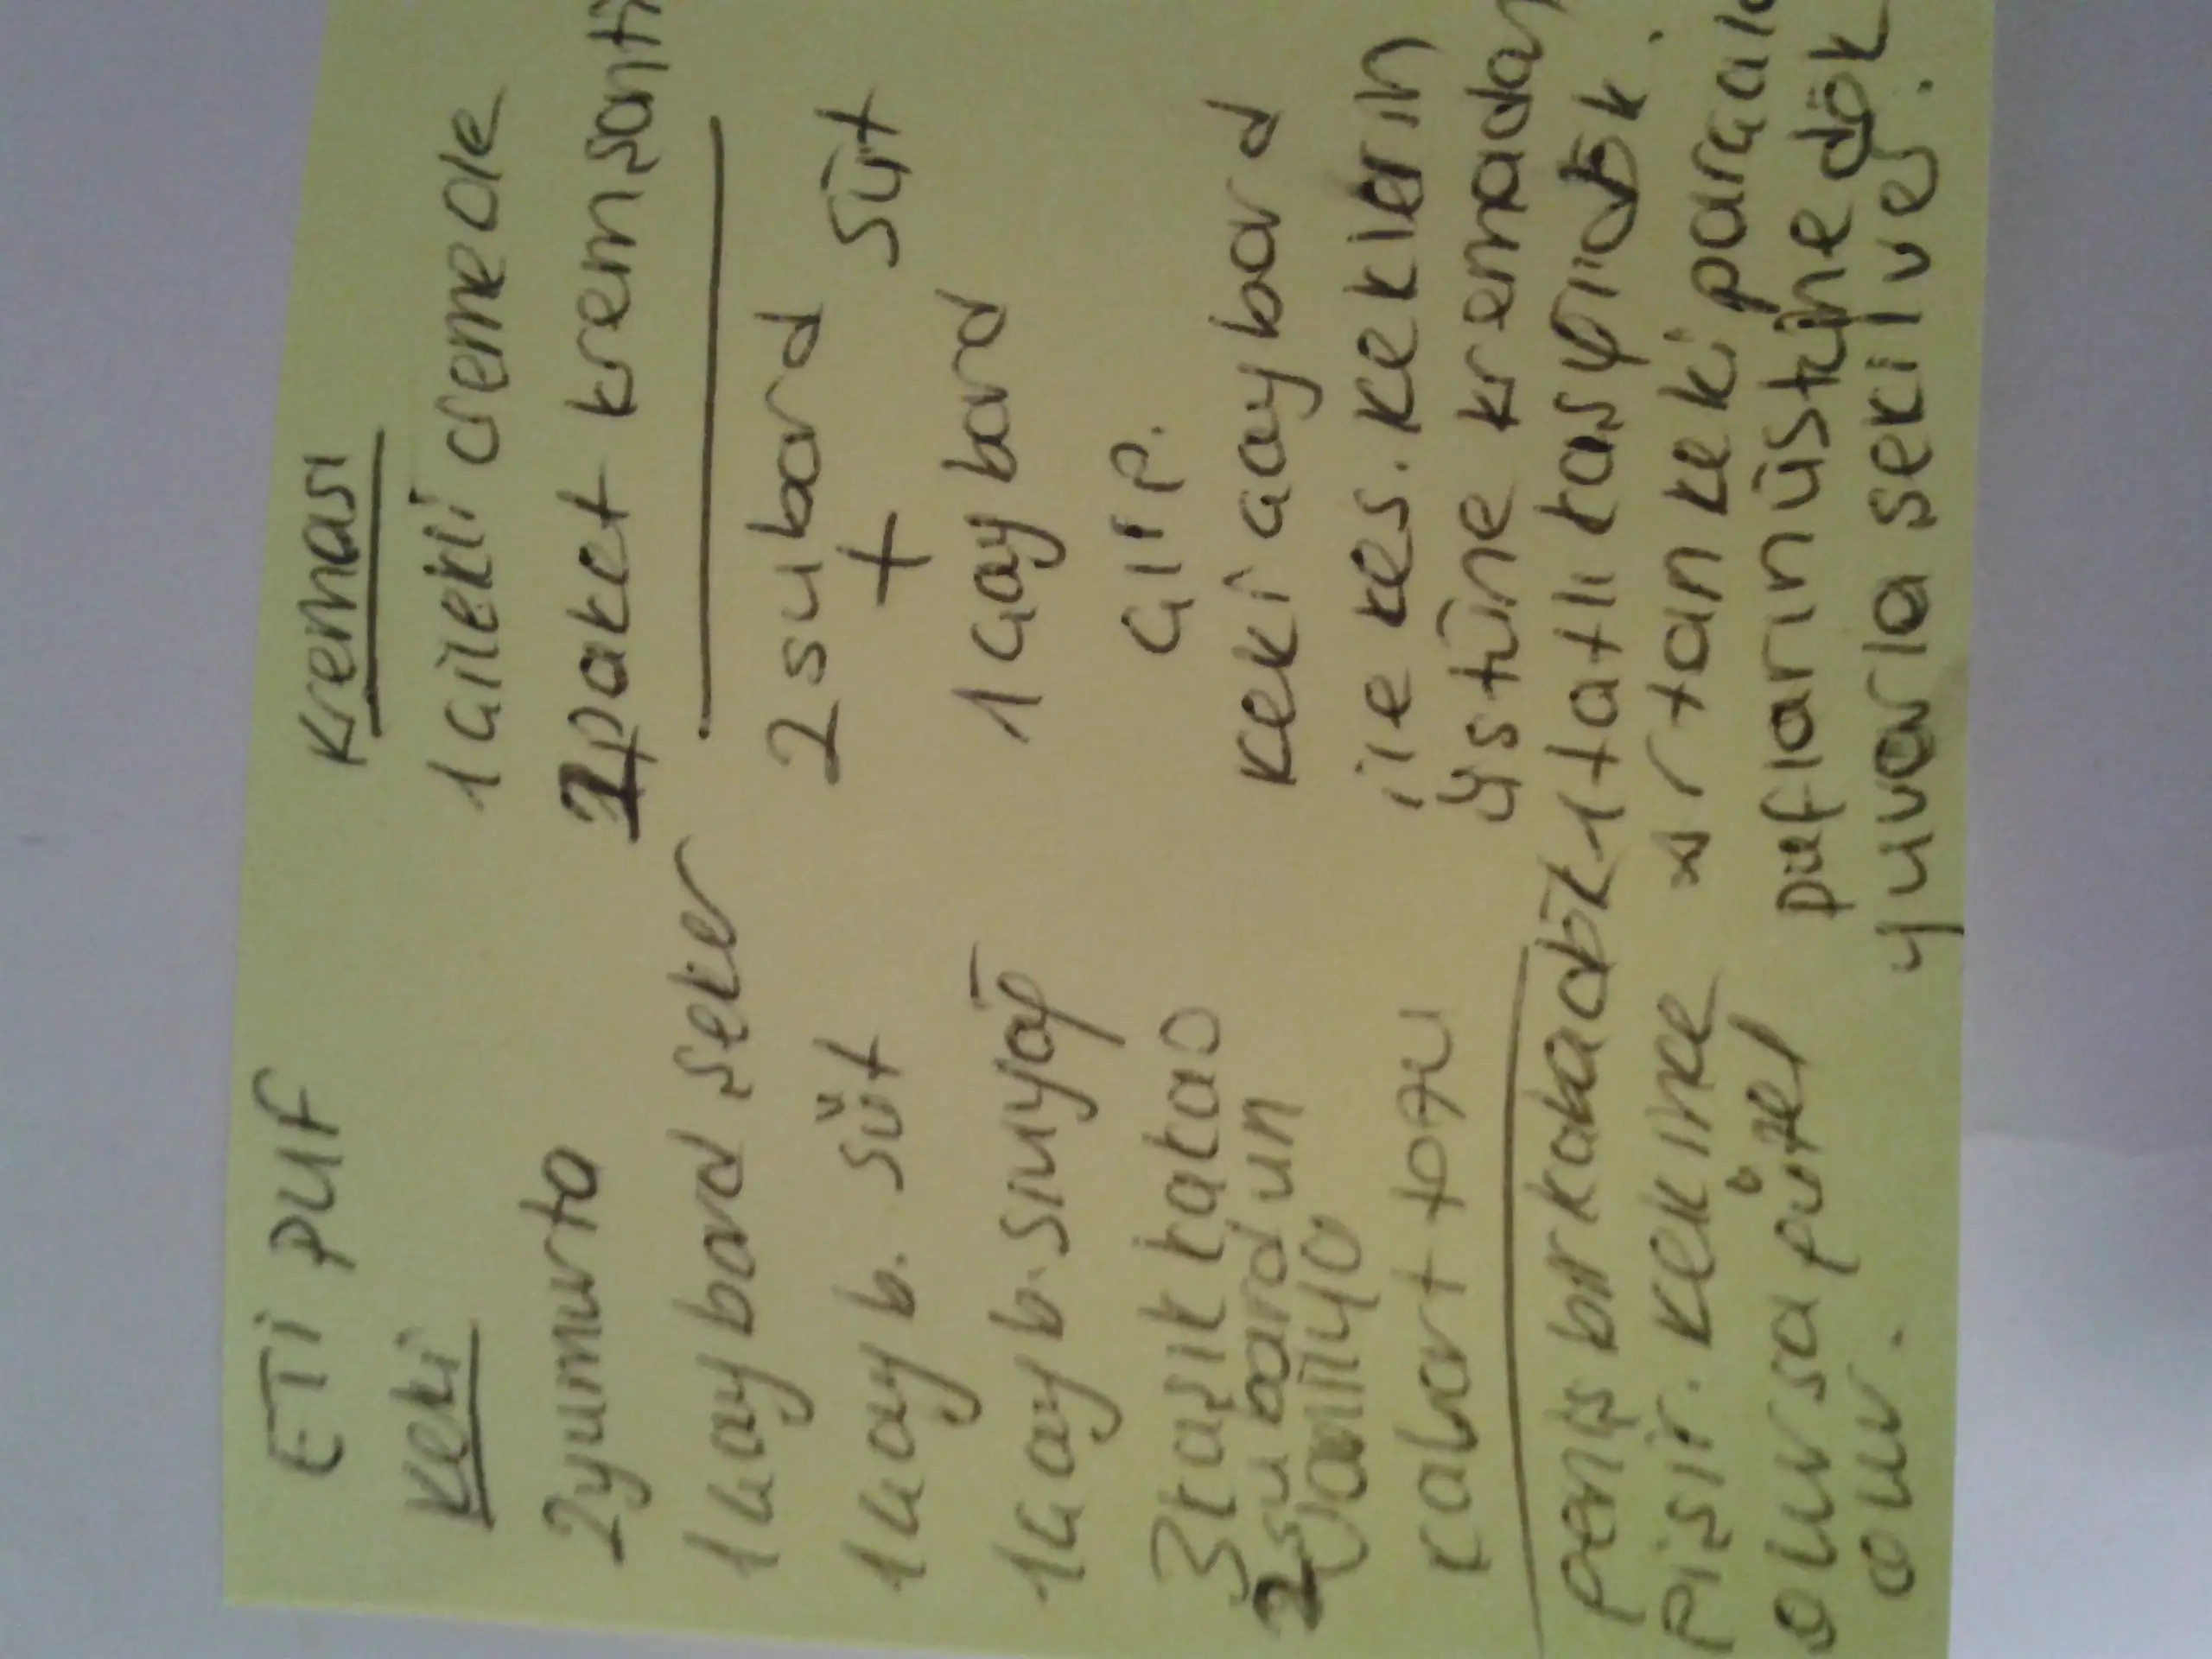 ETİ PUF
Keki
2 yumurta
1 çay bard şeker
1 çay b. süt
1 çay b. sıvıyağ
3 kaşık kakao
2 su bard un
Vanilya
kabart tozu
geniş bir kaba dök
pişir. Kek ince
olursa güzel
olur.
Kreması
1 çilekli cremole
2 paket kremşanti
2 su bard
+ süt
1 çay bard
çırp.
keki çay bard
ile kes. keklerin
üstüne kremadan
1 tatlı kaşığı dök.
artan keki parçala
pufların üstüne dök
yuvarla şekil ver.